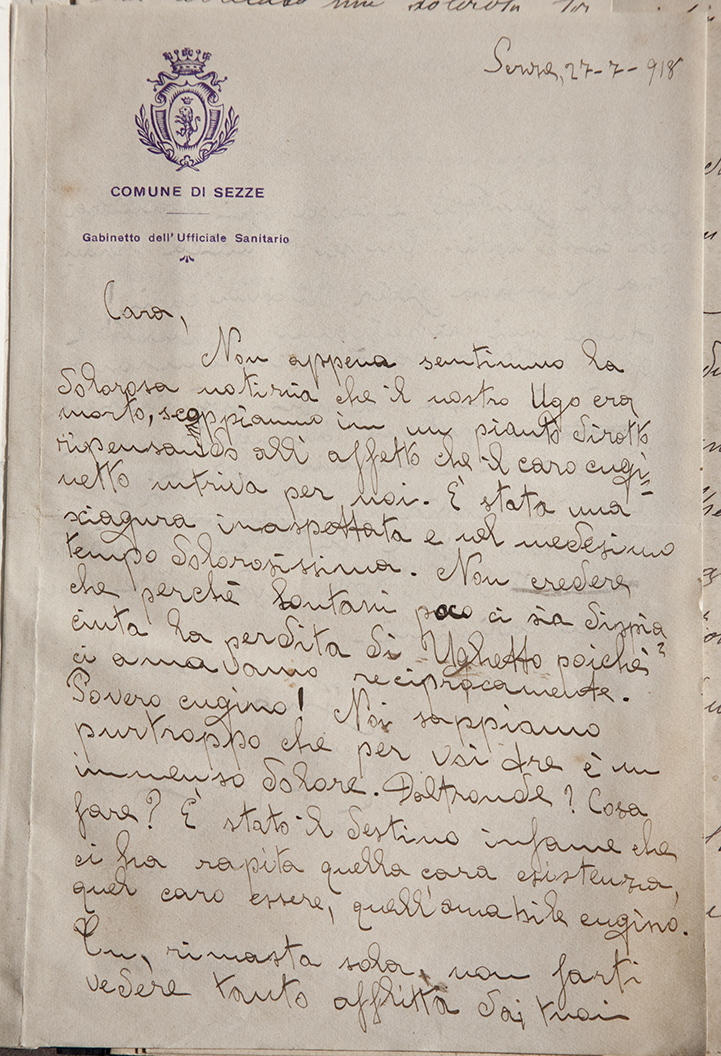 Sezze, 27-7-918
COMUNE DI SEZZE
Gabinetto dell'Ufficiale Sanitario
Cara,
Non appena sentimmo la
dolorosa notizia che il nostro Ugo era
morto, scoppiammo in un pianto dirotto
ripensando all'affetto che il caro cugi=
netto nutriva per noi. È stata una
sciagura inaspettata e nel medesimo
tempo dolorosissima. Non credere
che perchè lontani poco ci sia dispia=
ciuta la perdita di Ughetto poichè
ci amavamo reciprocamente.
Povero cugino! Noi sappiamo
purtroppo che per voi tre è un
immenso dolore. Daltronde? Cosa
fare? È stato il destino infame che
ci ha rapita quella cara esistenza,
quel caro essere, quell'amabile cugino.
Tu, rimasta sola, non farti
vedere tanto afflitta dai tuoi